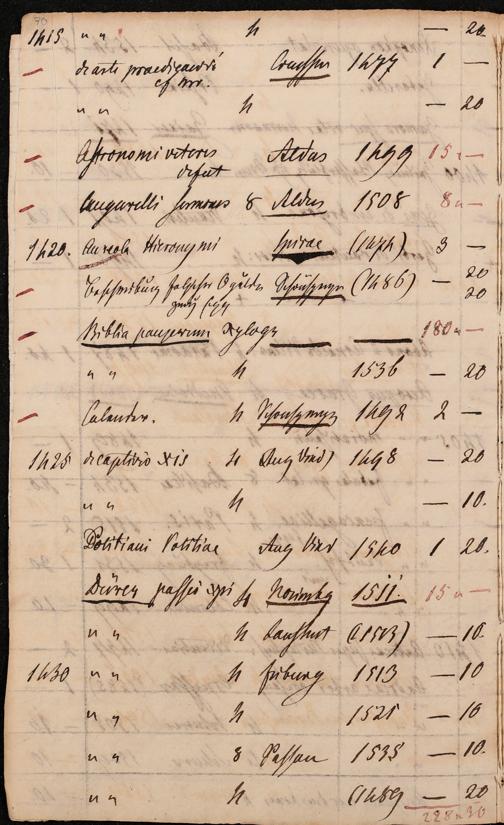 90
1415 " " 4 — 20
de arte praedicandi Creussner 1477 1 —
" " 4 — 20
Astronomi veteres Aldus 1499 15 " —
defect
Augurelli Sermones 8 Aldus 1508 8 " —
1420. Aureola Hieronymi Spirae (1474) 3 —
Schönsperger (1486) — 20
20
Biblia pauperum Xylogr — — 180 " —
" " 4 1536 — 20
Calender. 4 Schönsperger 1492 2 —
1425 de captivio xis 4 Aug Vind) 1498 — 20
" " 4 — 10.
Politiani Aug Vind 1540 1 20.
Dürer passio xpi 4 Norimbg 1511. 15 " —
" " 4 Landshut (1513) — 10.
1430 " " 4 friburg 1513 — 10
" " 4 1521 — 10
" " 8 Passau 1535 — 10.
" " 4 (1489) — 20
228 " 30